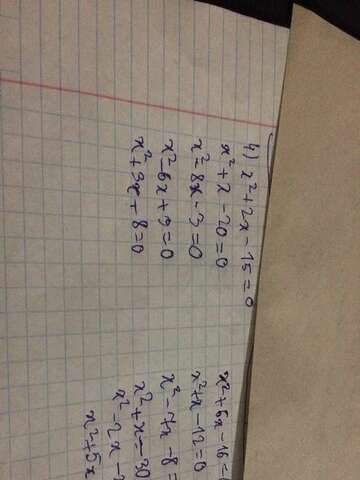 4) x²+2x-15=0
x²+x-20=0
x²-8x-3=0
x²-6x+9=0
x²+3x+8=0
x²+6x-16=
x²+x-12=0
x²-7x-8=
x²+x-30
x²-2x-
x²+5x